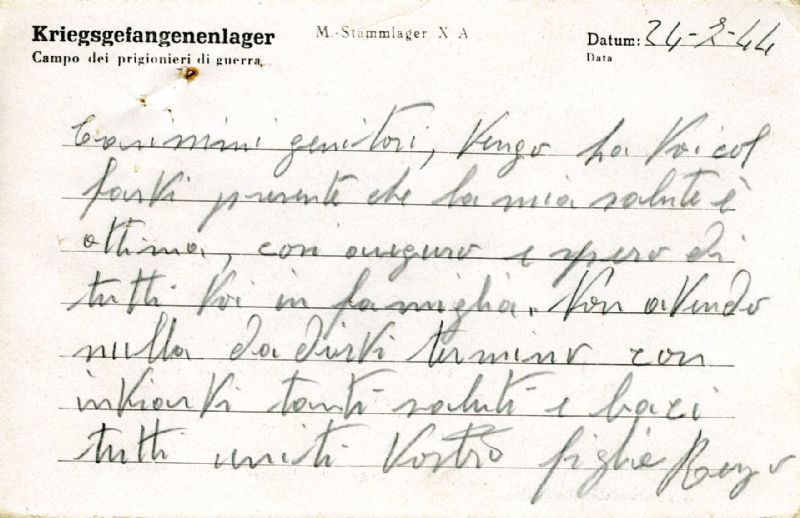 Kriegsgefangenenlager
M.-Stammlager X A
Datum: 24-2-44
Campo dei prigionieri di guerra
Data
Carissimi genitori, Vengo da Voi col
farVi presente che la mia salute è
ottima, così auguro e spero di
tutti Voi in famiglia. Non aVendo
nulla da dirVi termino con
inViarVi tanti saluti e baci
tutti uniti Vostro figlio Renzo